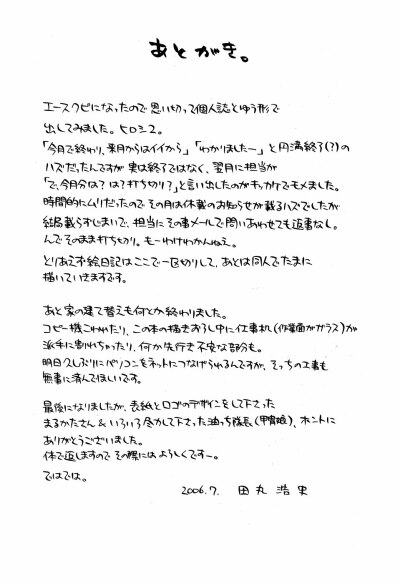 あとがき。
エースクビになったので思い切って個人誌とゆう形で
出してみました。ヒロシ2。
「今月で終わり、来月からはイイから」「わかりましたー」と円満終了(?)の
ハズだったんですが実は終了ではなく、翌月に担当が
「で、今月分は?は?打ち切り?」と言い出したのがキッカケでモメました。
時間的にムリだったのでその月は休載のお知らせが載るハズでしたが
結局載らずじまいで、担当にその事メールで問いあわせても返事なし。
んでそのまま打ち切り。もーわけわかんねえ。
とりあえず絵日記はここで一区切りして、あとは同人でたまに
描いていきますです。
あと家の建て替えも何とか終わりました。
コピー機こわれたり、この本の描きおろし中に仕事机(作業面がガラス)が
派手に割れちゃったり、何か先行き不安な部分も。
明日久しぶりにパソコンをネットにつなげられるんですが、そっちの工事も
無事に済んでほしいです。
最後になりましたが、表紙とロゴのデザインをして下さった
まるかたさん&いろいろ尽力して下さった油っち隊長(甲賀娘)、ホントに
ありがとうございました。
体で返しますので その際には よろしくですー。
ではでは。
2006.7. 田丸浩史